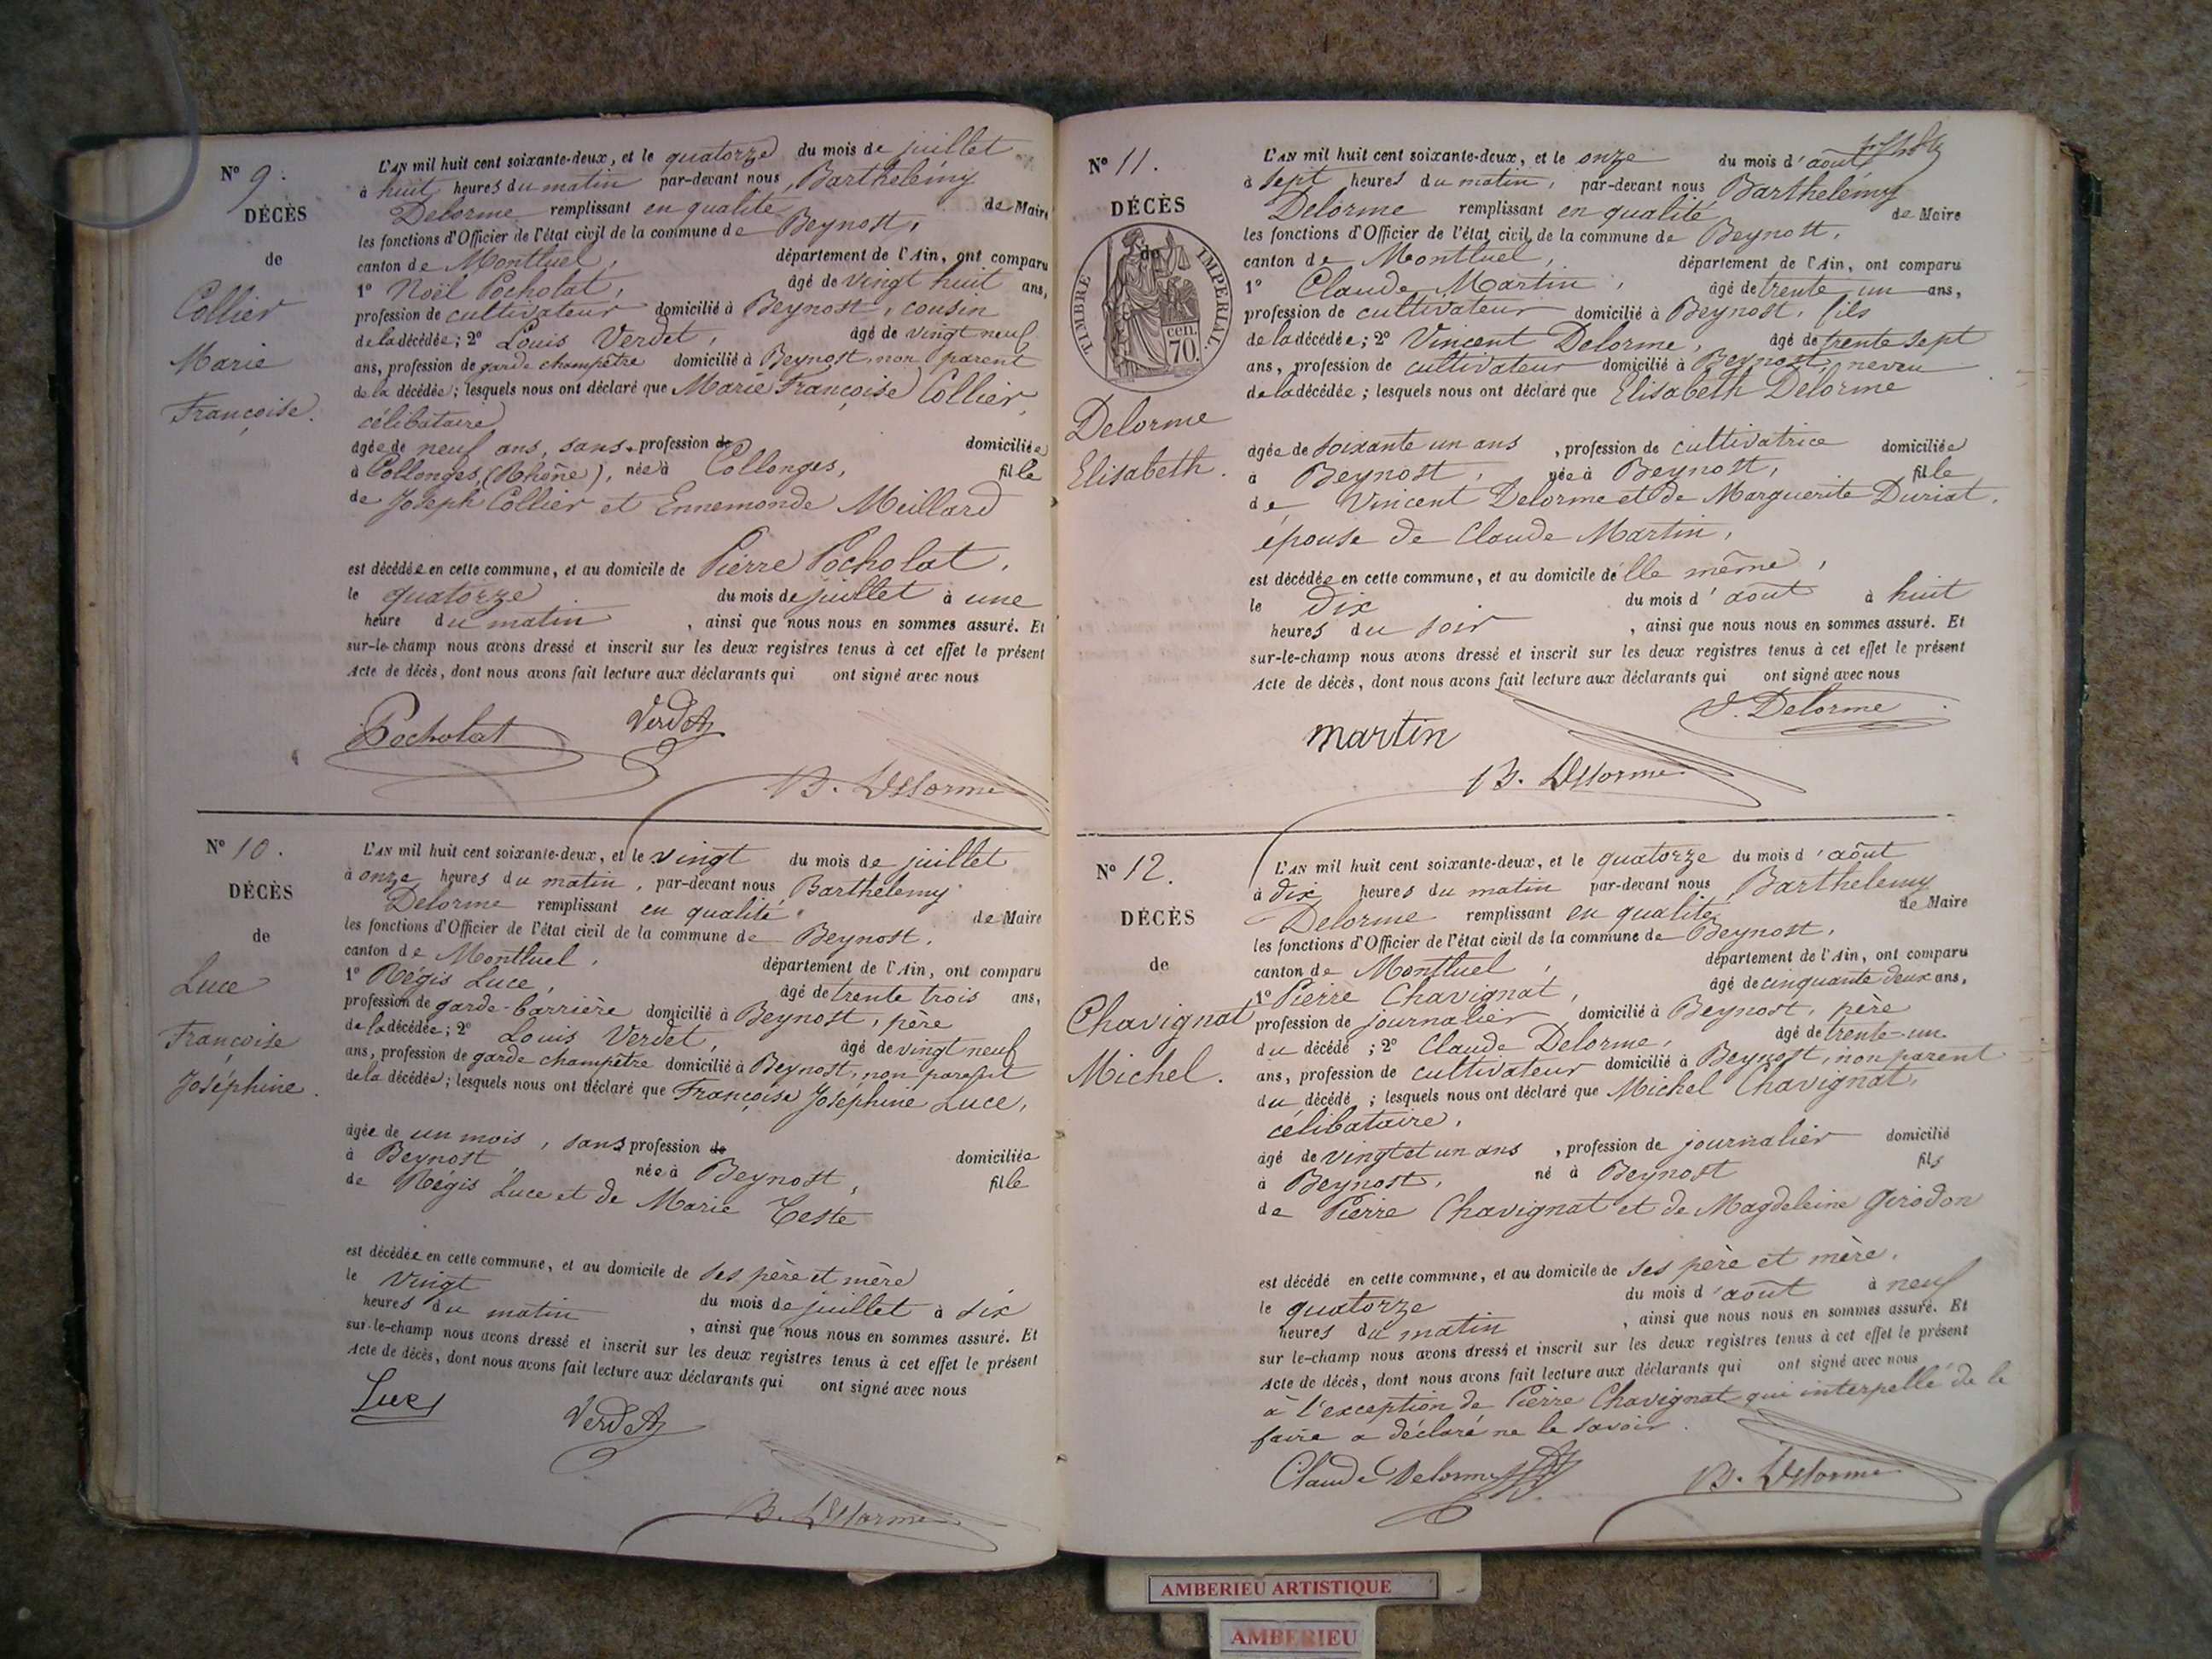 N° 9.
DÉCÈS
de
Collier
Marie
Françoise.
L'AN mil huit cent soixante-deux, et le quatorze du mois de juillet
à huit heures du matin par-devant nous, Barthelémy
Delorme remplissant en qualité de Maire
les fonctions d'Officier de l'état civil de la commune de Beynost,
canton de Montluel, département de l'Ain, ont comparu
1° Noël Pocholat, âgé de vingt huit ans,
profession de cultivateur domicilié à Beynost, cousin
de la décédée; 2° Louis Verdet, âgé de vingt neuf
ans, profession de garde champêtre domicilié à Beynost, non parent
de la décédée; lesquels nous ont déclaré que Marie Françoise Collier,
célibataire
âgée de neuf ans, sans profession de domiciliée
à Collonges, (Rhône), née à Collonges, fille
de Joseph Collier et Ennemonde Meillard
est décédée en cette commune, et au domicile de Pierre Pocholat,
le quatorze du mois de juillet à une
heure du matin, ainsi que nous nous en sommes assuré. Et
sur-le-champ nous avons dressé et inscrit sur les deux registres tenus à cet effet le présent
Acte de décès, dont nous avons fait lecture aux déclarants qui ont signé avec nous
Pocholat Verdet
B. Delorme
N° 10.
DÉCÈS
de
Luce
Françoise
Joséphine.
L'AN mil huit cent soixante-deux, et le vingt du mois de juillet
à onze heures du matin, par-devant nous Barthelemy
Delorme remplissant en qualité de Maire
les fonctions d'Officier de l'état civil de la commune de Beynost,
canton de Montluel, département de l'Ain, ont comparu
1° Régis Luce, âgé de trente trois ans,
profession de garde-barrière domicilié à Beynost, père
de la décédée; 2° Louis Verdet, âgé de vingt neuf
ans, profession de garde champêtre domicilié à Beynost, non parent
de la décédée; lesquels nous ont déclaré que Françoise Joséphine Luce,
âgée de un mois, sans profession de domiciliée
à Beynost née à Beynost, fille
de Régis Luce et de Marie Teste
est décédée en cette commune, et au domicile de ses père et mère
le vingt du mois de juillet à six
heures du matin, ainsi que nous nous en sommes assuré. Et
sur-le-champ nous avons dressé et inscrit sur les deux registres tenus à cet effet le présent
Acte de décès, dont nous avons fait lecture aux déclarants qui ont signé avec nous
Luce Verdet
B. Delorme
N° 11.
DÉCÈS
de
TIMBRE IMPERIAL.
70. cen.
Delorme
Elisabeth.
L'AN mil huit cent soixante-deux, et le onze du mois d'août
à sept heures du matin, par-devant nous Barthelémy
Delorme remplissant en qualité de Maire
les fonctions d'Officier de l'état civil de la commune de Beynost,
canton de Montluel, département de l'Ain, ont comparu
1° Claude Martin, âgé de trente un ans,
profession de cultivateur domicilié à Beynost, fils
de la décédée; 2° Vincent Delorme, âgé de trente sept
ans, profession de cultivateur domicilié à Beynost, neveu
de la décédée; lesquels nous ont déclaré que Elisabeth Delorme
âgée de soixante un ans, profession de cultivatrice domiciliée
à Beynost, née à Beynost, fille
de Vincent Delorme et de Marguerite Duriat,
épouse de Claude Martin,
est décédée en cette commune, et au domicile d'elle même,
le dix du mois d'août à huit
heures du soir, ainsi que nous nous en sommes assuré. Et
sur-le-champ nous avons dressé et inscrit sur les deux registres tenus à cet effet le présent
Acte de décès, dont nous avons fait lecture aux déclarants qui ont signé avec nous
martin V. Delorme
B. Delorme
N° 12.
DÉCÈS
de
Chavignat
Michel.
L'AN mil huit cent soixante-deux, et le quatorze du mois d'août
à dix heures du matin par-devant nous Barthelemy
Delorme remplissant en qualité de Maire
les fonctions d'Officier de l'état civil de la commune de Beynost,
canton de Montluel, département de l'Ain, ont comparu
1° Pierre Chavignat, âgé de cinquante deux ans,
profession de journalier domicilié à Beynost, père
du décédé; 2° Claude Delorme, âgé de trente-un
ans, profession de cultivateur domicilié à Beynost, non parent
du décédé; lesquels nous ont déclaré que Michel Chavignat,
célibataire,
âgé de vingt et un ans, profession de journalier domicilié
à Beynost, né à Beynost fils
de Pierre Chavignat et de Magdeleine Girodon
est décédé en cette commune, et au domicile de ses père et mère,
le quatorze du mois d'août à neuf
heures du matin, ainsi que nous nous en sommes assuré. Et
sur le-champ nous avons dressé et inscrit sur les deux registres tenus à cet effet le présent
Acte de décès, dont nous avons fait lecture aux déclarants qui ont signé avec nous
à l'exception de Pierre Chavignat qui interpellé de le
faire a déclaré ne le savoir.
Claude Delorme B. Delorme
AMBERIEU ARTISTIQUE
AMBERIEU